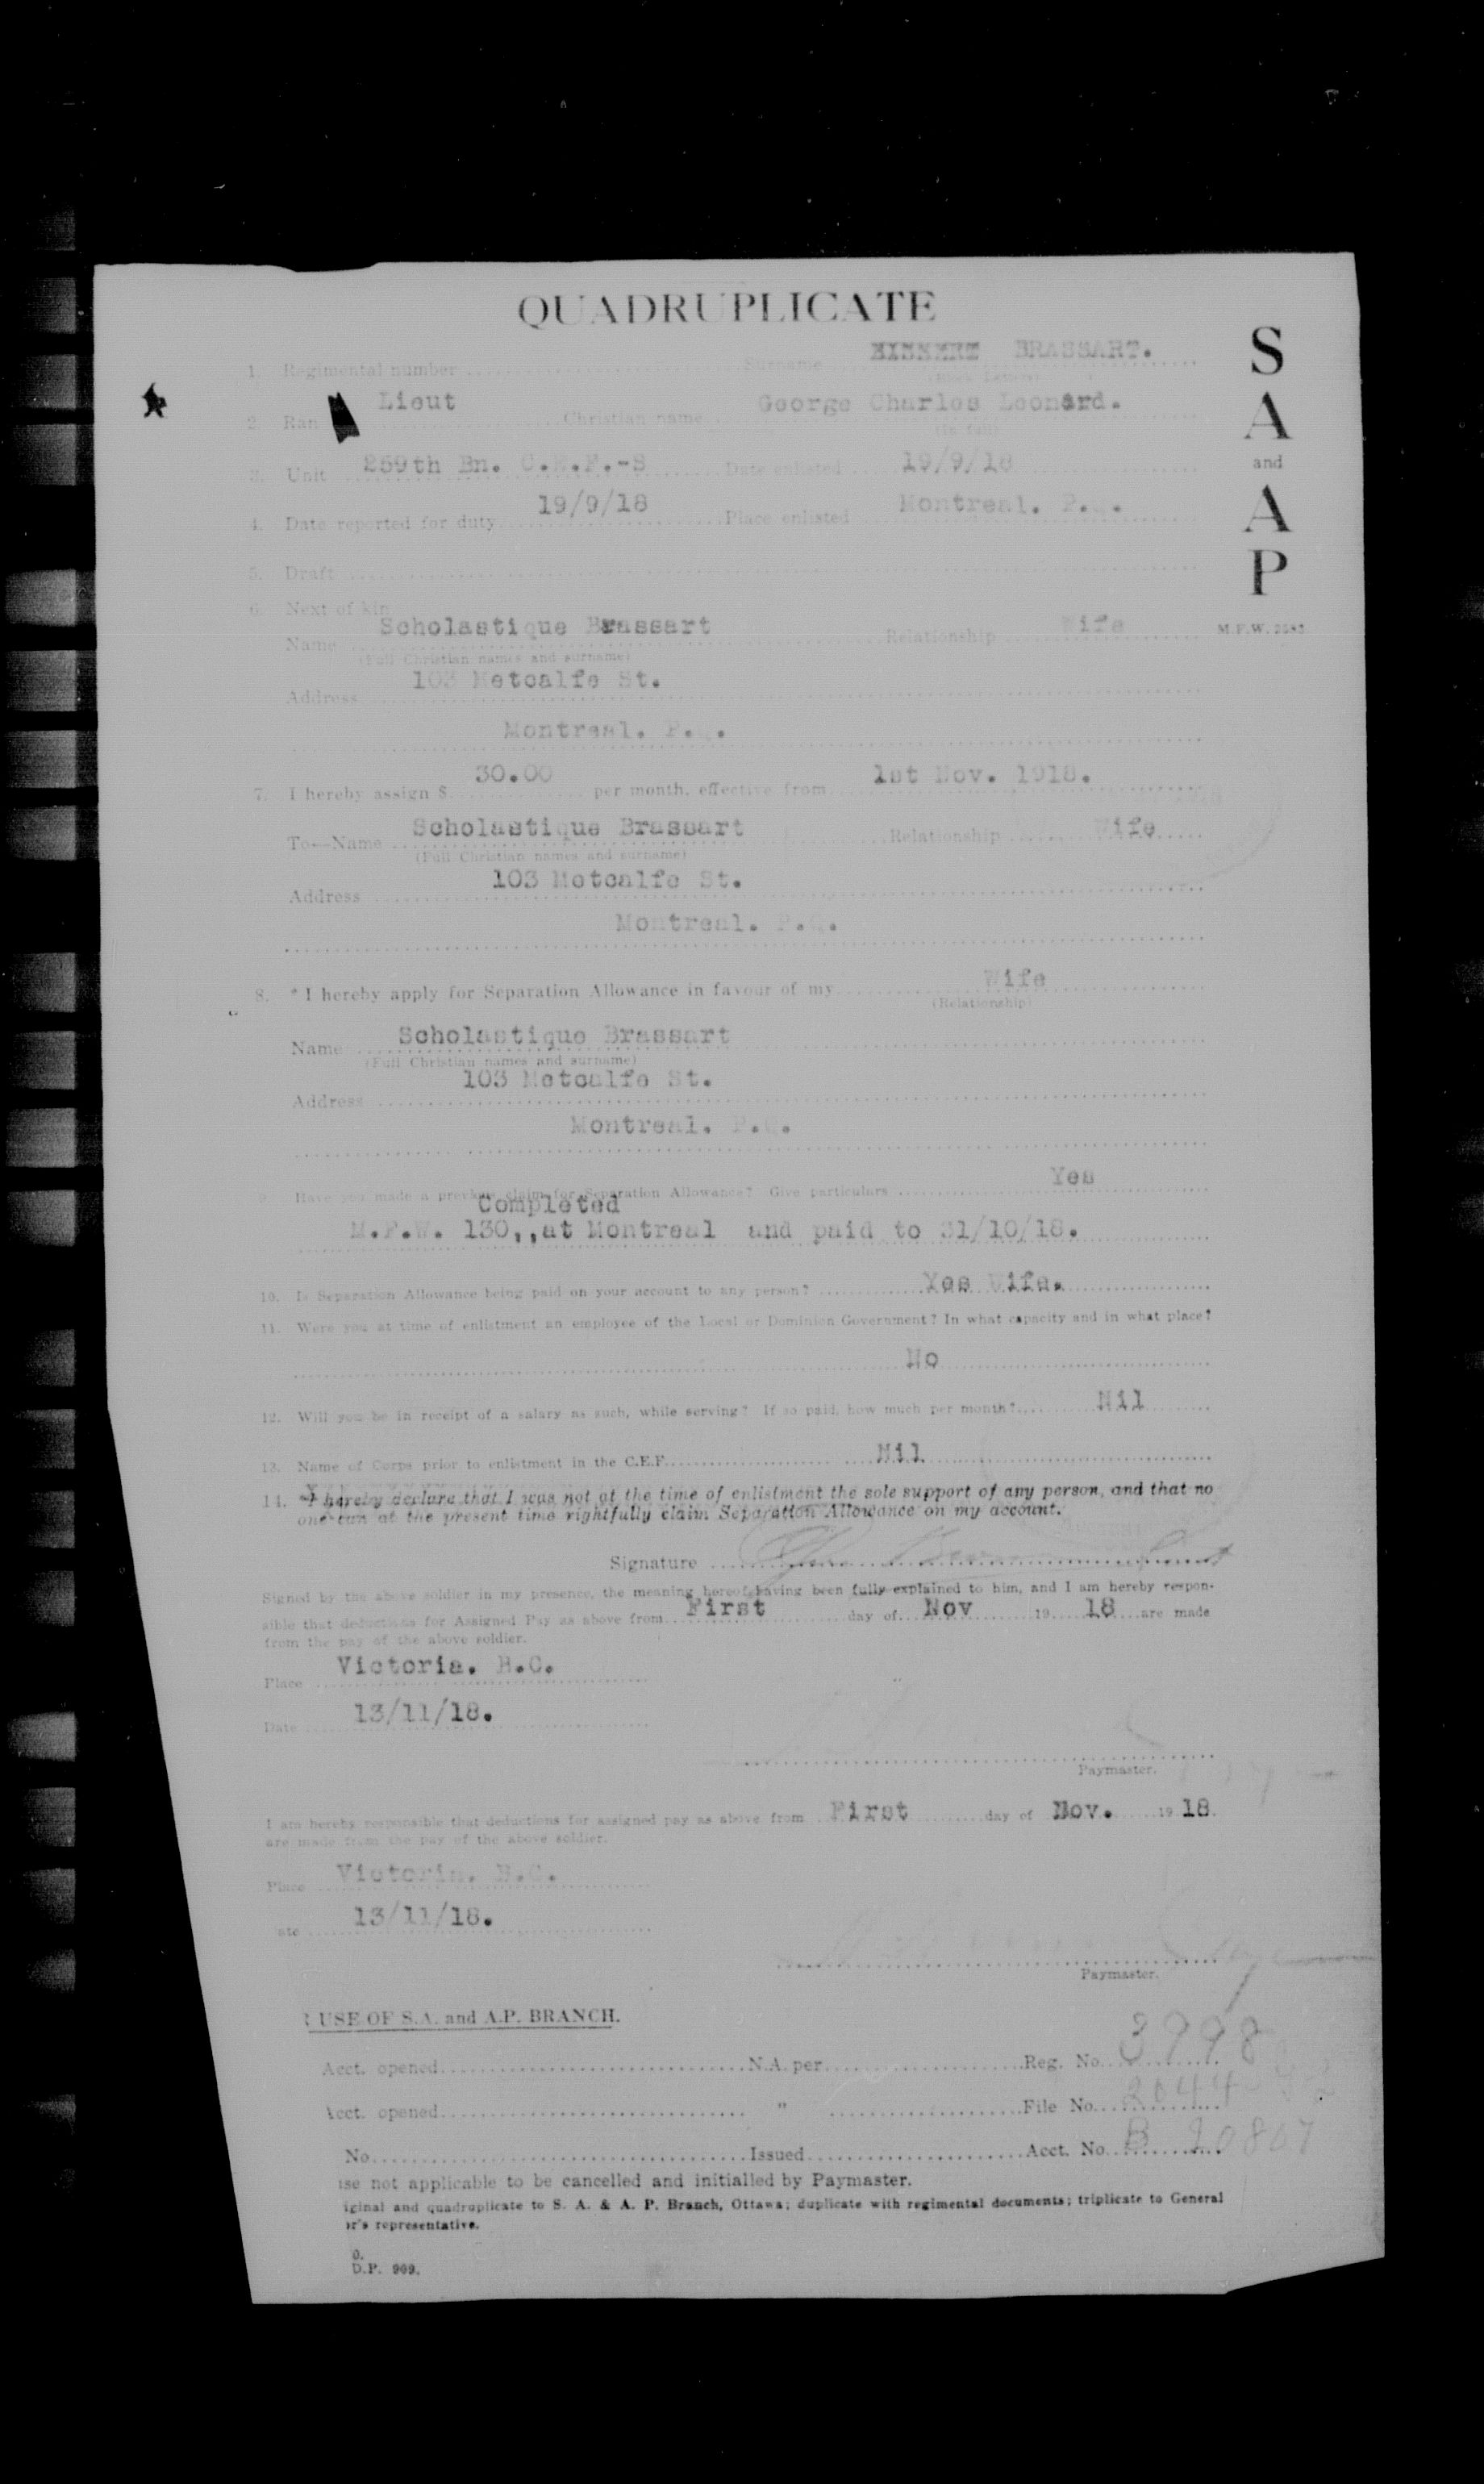 QUADRUPLICATE
S
A
and
A
P
M.F.W. 2582
1. Regimental number Surname BRASSART.
(Block Letters)
2. Ran Lieut Christian name George Charles Leonard.
(In full)
3. Unit 259th Bn. C.E.F.-S Date enlisted 19/9/18
4. Date reported for duty 19/9/18 Place enlisted Montreal. P.Q.
5. Draft
6. Next of kin
Name Scholastique Brassart Relationship Wife
(Full Christian names and surname)
Address 103 Metcalfe St.
Montreal. P.Q.
7. I hereby assign $ 30.00 per month, effective from 1st Nov. 1918.
To—Name Scholastique Brassart Relationship Wife
(Full Christian names and surname)
Address 103 Metcalfe St.
Montreal. P.Q.
8. * I hereby apply for Separation Allowance in favour of my Wife
(Relationship)
Name Scholastique Brassart
(Full Christian names and surname)
Address 103 Metcalfe St.
Montreal. P.Q.
9. Have you made a previous claim for Separation Allowance? Give particulars Yes
Completed
M.F.W. 130,,at Montreal and paid to 31/10/18.
10. Is Separation Allowance being paid on your account to any person? Yes Wife.
11. Were you at time of enlistment an employee of the Local or Dominion Government? In what capacity and in what place?
No
12. Will you be in receipt of a salary as such, while serving? If so paid, how much per month? Nil
13. Name of Corps prior to enlistment in the C.E.F. Nil
14. *I hereby declare that I was not at the time of enlistment the sole support of any person, and that no
one can at the present time rightfully claim Separation Allowance on my account.
Signature
Signed by the above soldier in my presence, the meaning hereof having been fully explained to him, and I am hereby respon-
sible that deductions for Assigned Pay as above from First day of Nov 19 18 are made
from the pay of the above soldier.
Place Victoria. B.C.
Date 13/11/18.
Paymaster.
I am hereby responsible that deductions for assigned pay as above from First day of Nov. 19 18.
are made from the pay of the above soldier.
Place Victoria. B.C.
ate 13/11/18.
Paymaster.
R USE OF S.A. and A.P. BRANCH.
Acct. opened N.A. per Reg. No. 3998
Acct. opened " File No.
No. Issued Acct. No. B
use not applicable to be cancelled and initialled by Paymaster.
iginal and quadruplicate to S. A. & A. P. Branch, Ottawa; duplicate with regimental documents; triplicate to General
or's representative.
0.
D.P. 909.